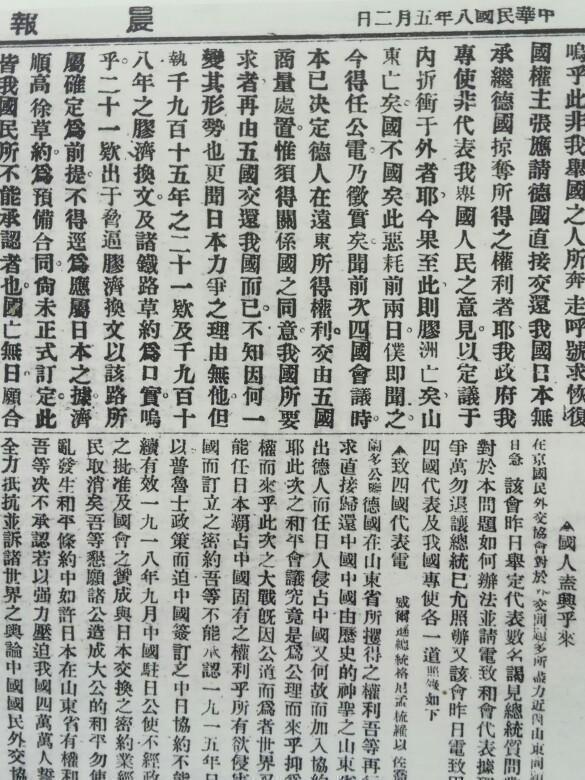 中華民國八年五月二日
晨報
嗚乎此非我舉國之人所奔走呼號求恢復
國權主張應請德國直接交還我國日本無
承繼德國掠奪所得之權利者耶我政府我
專使非代表我舉國人民之意見以定議于
內折衝于外者耶今果至此則膠洲亡矣山
東亡矣國不國矣此惡耗前兩日僕即聞之
今得任公電乃徵實矣聞前次四國會議時
本已決定德人在遠東所得權利交由五國
商量處置惟須得關係國之同意我國所要
求者再由五國交還我國而已不知因何一
變其形勢也更聞日本力爭之理由無他但
執千九百十五年之二十一欵及千九百十
八年之膠濟換文及諸鐵路草約爲口實嗚
乎二十一欵出于脅逼膠濟換文以該路所
屬確定爲前提不得逕爲應屬日本之據濟
順高徐草約爲預備合同尚未正式訂定此
皆我國民所不能承認者也。國亡無日願合
▲國人盍興乎來
在京國民外交協會對於外交問題多所盡力近因山東問
日急 該會昨日舉定代表數名謁見總統質問
對於本問題如何辦法並請電致和會代表據
爭萬勿退議總統已允照辦又該會昨日電致
四國代表及我國專使各一道照錄如下
▲致四國代表電
德國在山東省所攫得之權利吾等再
求直接歸還中國中國由歷史的神聖之山東省
出德人而任日人侵占中國又何故而加入協約
耶此次之和平會議究竟是爲公理而來乎抑爲
權而來乎此次之大戰旣因公道而爲者世界又
能任日本覇占中國固有之權利乎所有欲侵害
國而訂立之密約吾等不能承認一九一五年日
以普魯士政策而迫中國簽訂之中日協約不能
續有效一九一八年九月中國駐日公使不經政
之批准及國會之贊成與日本交換之密約業經
民取消矣吾等懇願諸公造成大公的和平勿使
亂發生和平條約中如許日本在山東省有權利
吾等决不承認若以强力壓迫我國四萬萬人誓
全力抵抗並訴諸世界之輿論中國國民外交協